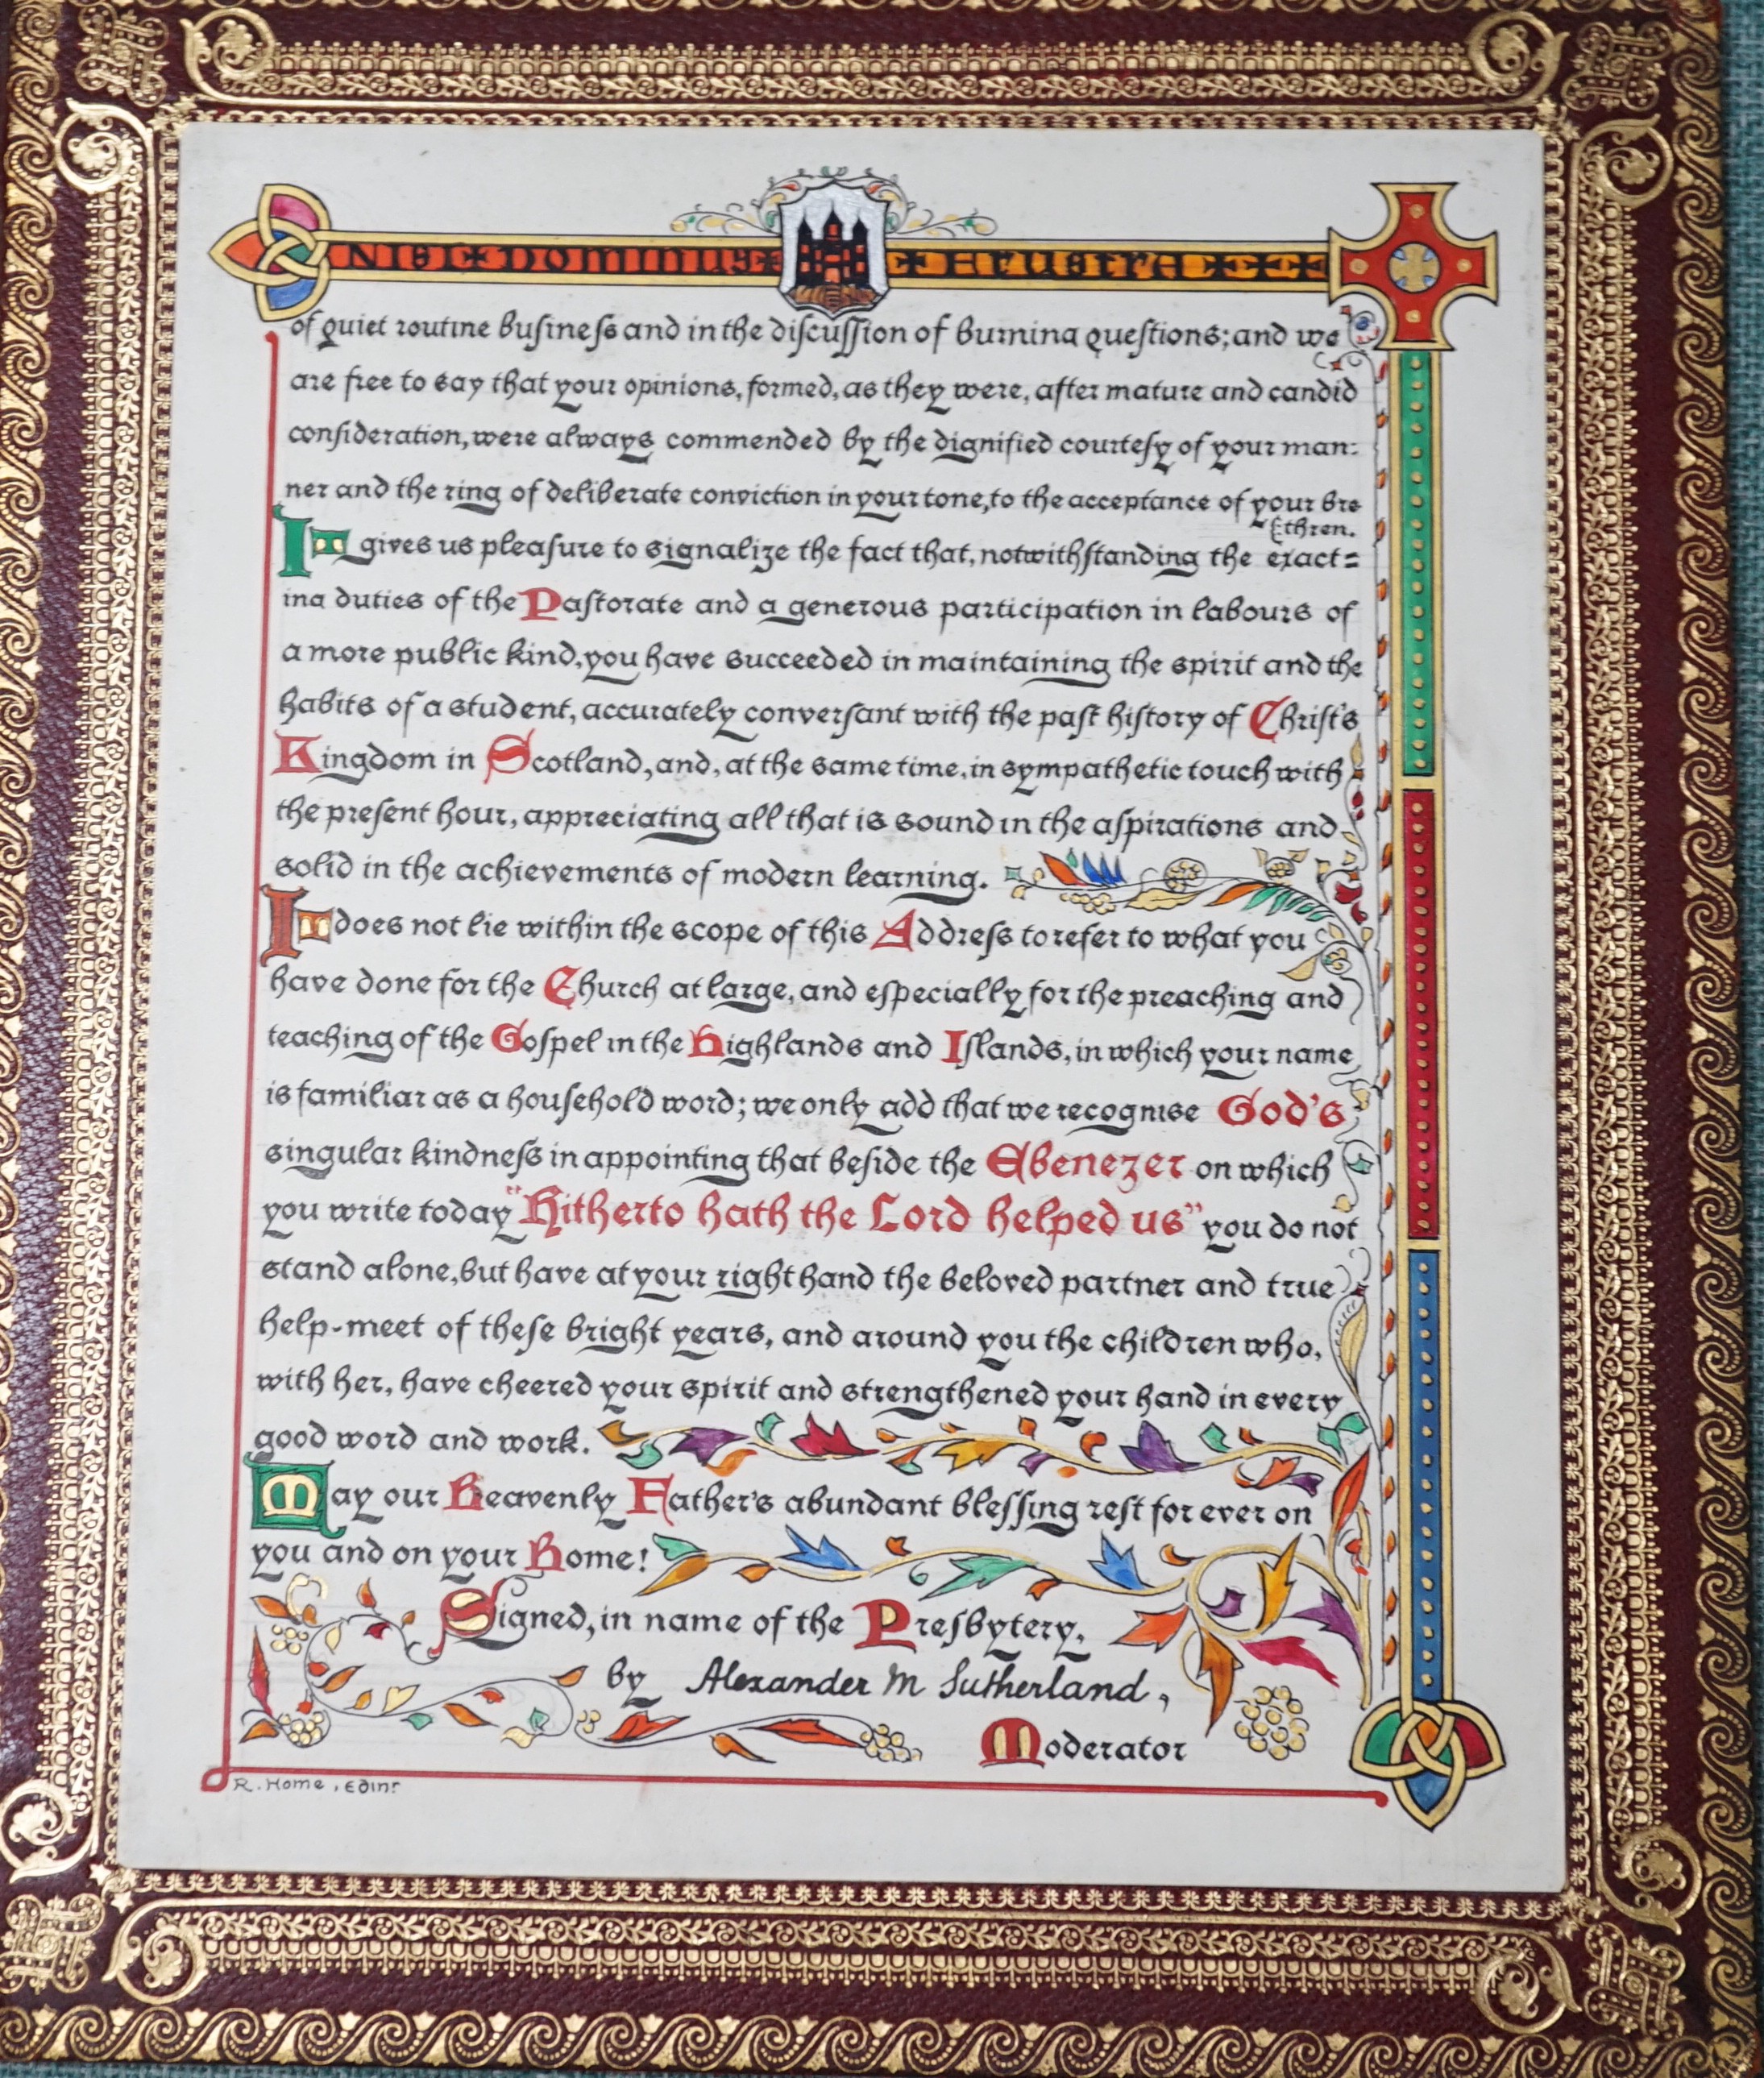 NISI DOMINUS FRUSTRA
of quiet routine buſineſs and in the diſcuſſion of burning queſtions; and we
are free to say that your opinions, formed, as they were, after mature and candid
conſideration, were always commended by the dignified courteſy of your man:
ner and the ring of deliberate conviction in your tone, to the acceptance of your bre
thren.
It gives us pleaſure to signalize the fact that, notwithſtanding the exact=
ing duties of the Paſtorate and a generous participation in labours of
a more public kind, you have succeeded in maintaining the spirit and the
habits of a student, accurately converſant with the paſt hiſtory of Chriſt's
Kingdom in Scotland, and, at the same time, in sympathetic touch with
the preſent hour, appreciating all that is sound in the aſpirations and
solid in the achievements of modern learning.
It does not lie within the scope of this Addreſs to refer to what you
have done for the Church at large, and eſpecially for the preaching and
teaching of the Goſpel in the Highlands and Iſlands, in which your name
is familiar as a houſehold word; we only add that we recognise God's
singular kindneſs in appointing that beſide the Ebenezer on which
you write today "Hitherto hath the Lord helped us" you do not
stand alone, but have at your right hand the beloved partner and true
help-meet of theſe bright years, and around you the children who,
with her, have cheered your spirit and strengthened your hand in every
good word and work.
May our Heavenly Father's abundant bleſſing reſt for ever on
you and on your Home!
Signed, in name of the Preſbytery,
by Alexander M Sutherland,
Moderator
R. Home, Edinr